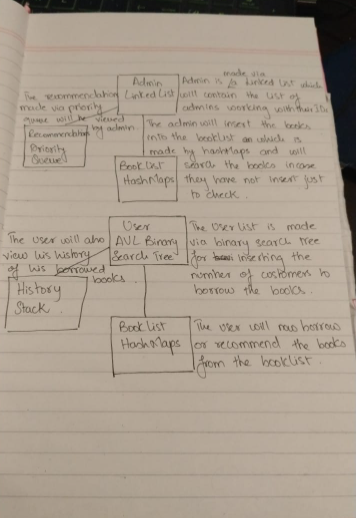 made via
Admin
Linked List
Admin is a Linked List which
will contain the list of
admins working with their IDs
The recommendation
made via priority
queue will be viewed
by admin.
Recommendation
Priority
Queue
The admin will insert the books
into the booklist which is
made by hashMaps and will
search the books incase
they have not insert just
to check.
Book List
HashMaps
User
AVL Binary
Search Tree
The User List is made
via binary search tree
for inserting the
number of customers to
borrow the books.
The user will also
view his history
of his borrowed
books.
History
Stack.
Book List
HashMaps
The user will now borrow
or recommend the books
from the booklist.